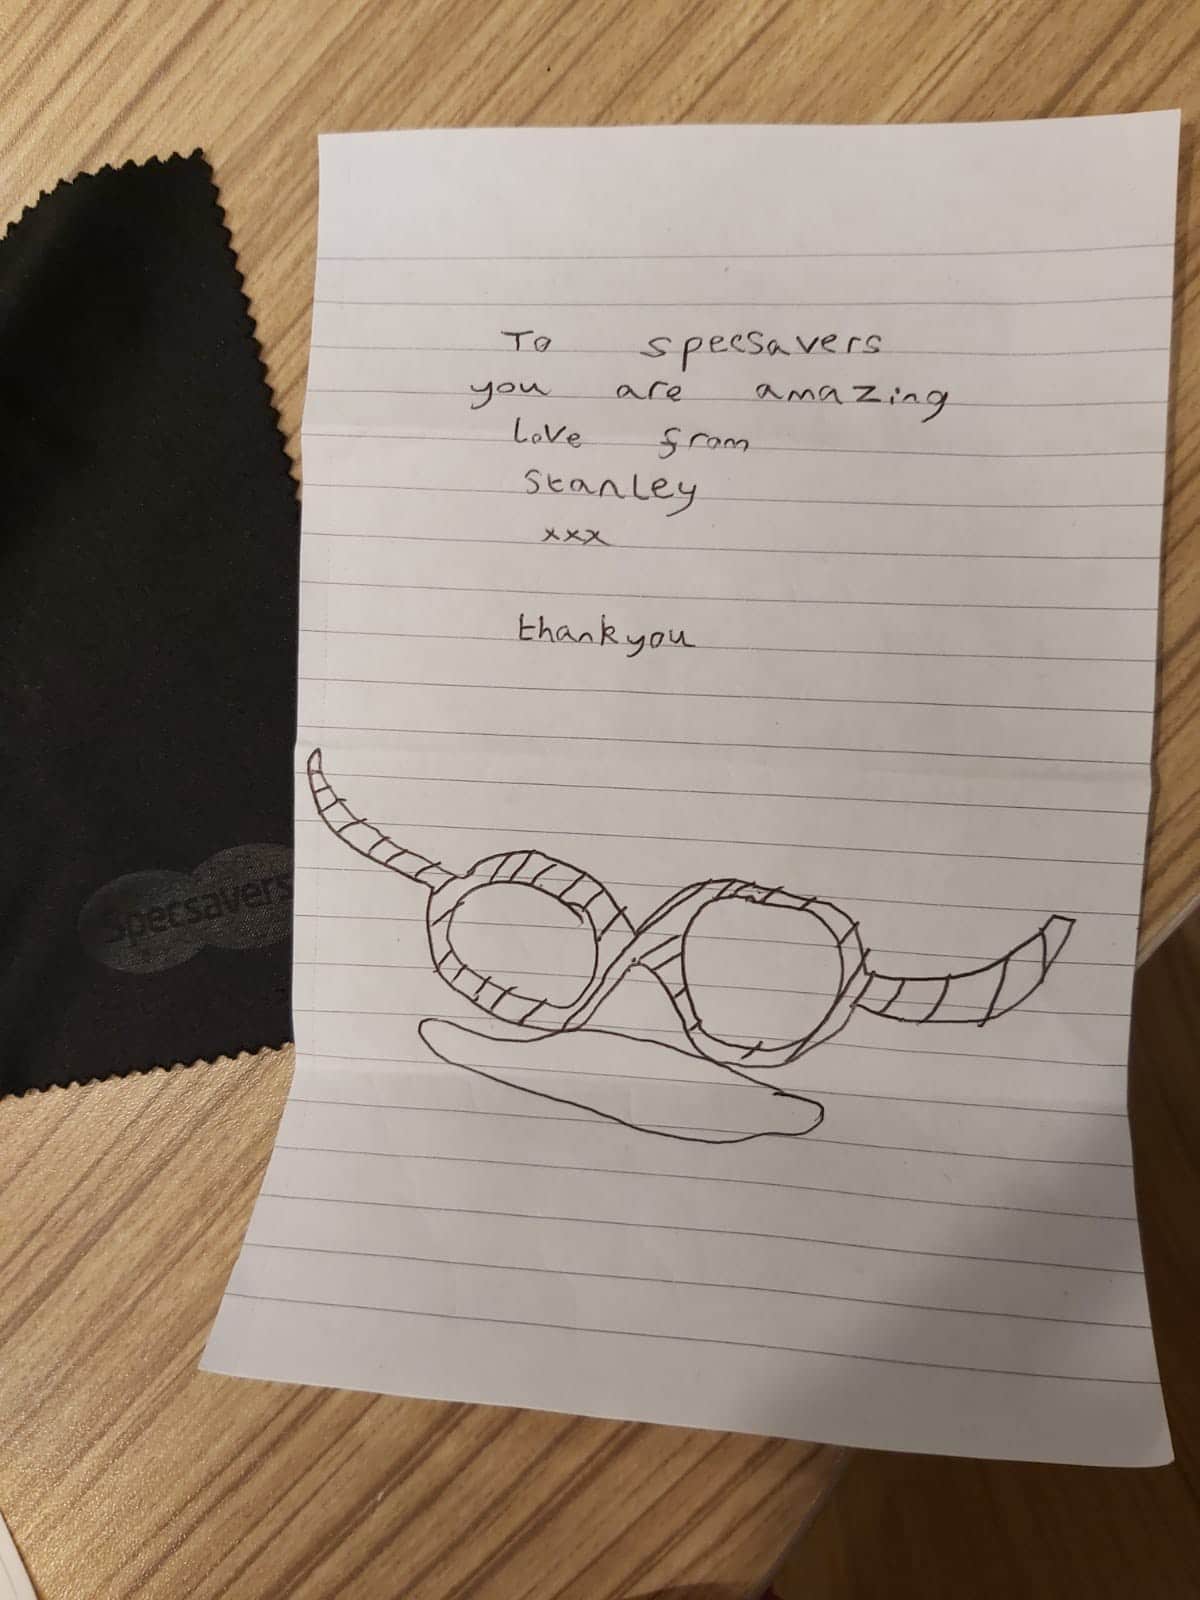 To specsavers
you are amazing
Love from
Stanley
xxx
thankyou
Specsavers